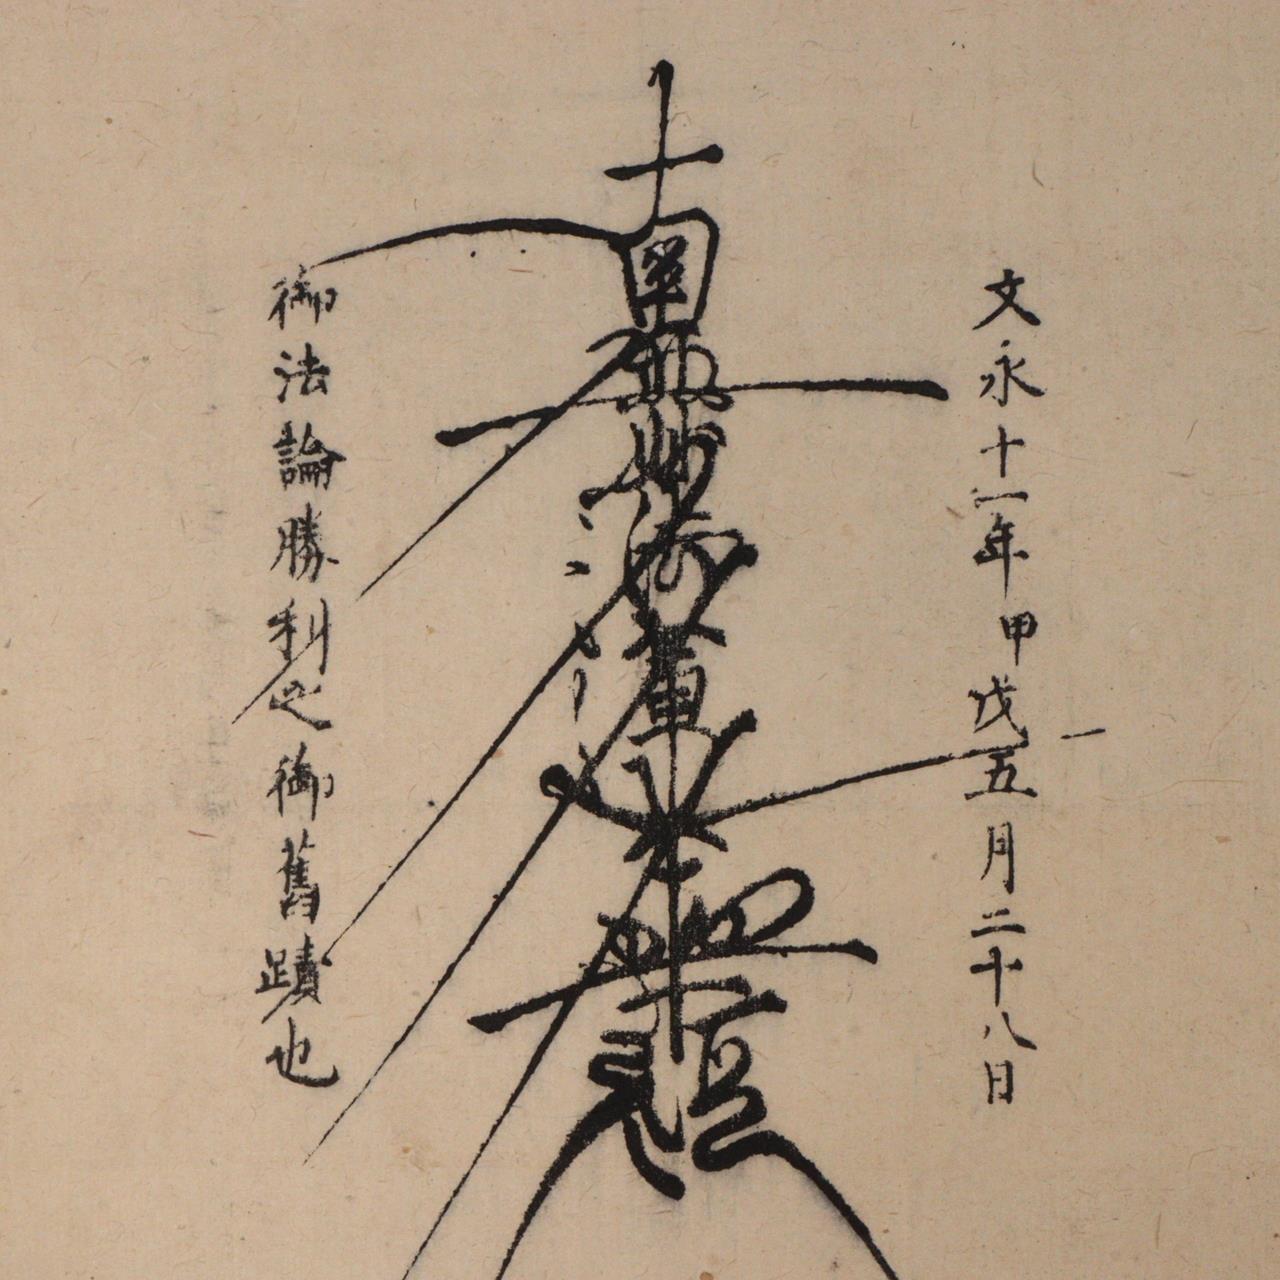 文永十一年甲戌五月二十八日
南無妙法蓮華經
御法論勝利之御舊蹟也